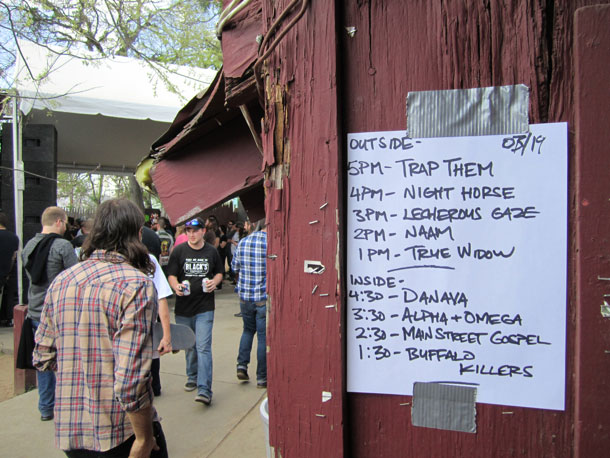 OUTSIDE- 03/19
5PM- TRAP THEM
4PM- NIGHT HORSE
3PM- LECHEROUS GAZE
2PM- NAAM
1PM- TRUE WIDOW
INSIDE-
4:30- DANAVA
3:30- ALPHA + OMEGA
2:30- MAIN STREET GOSPEL
1:30- BUFFALO
KILLERS
BLACK'S